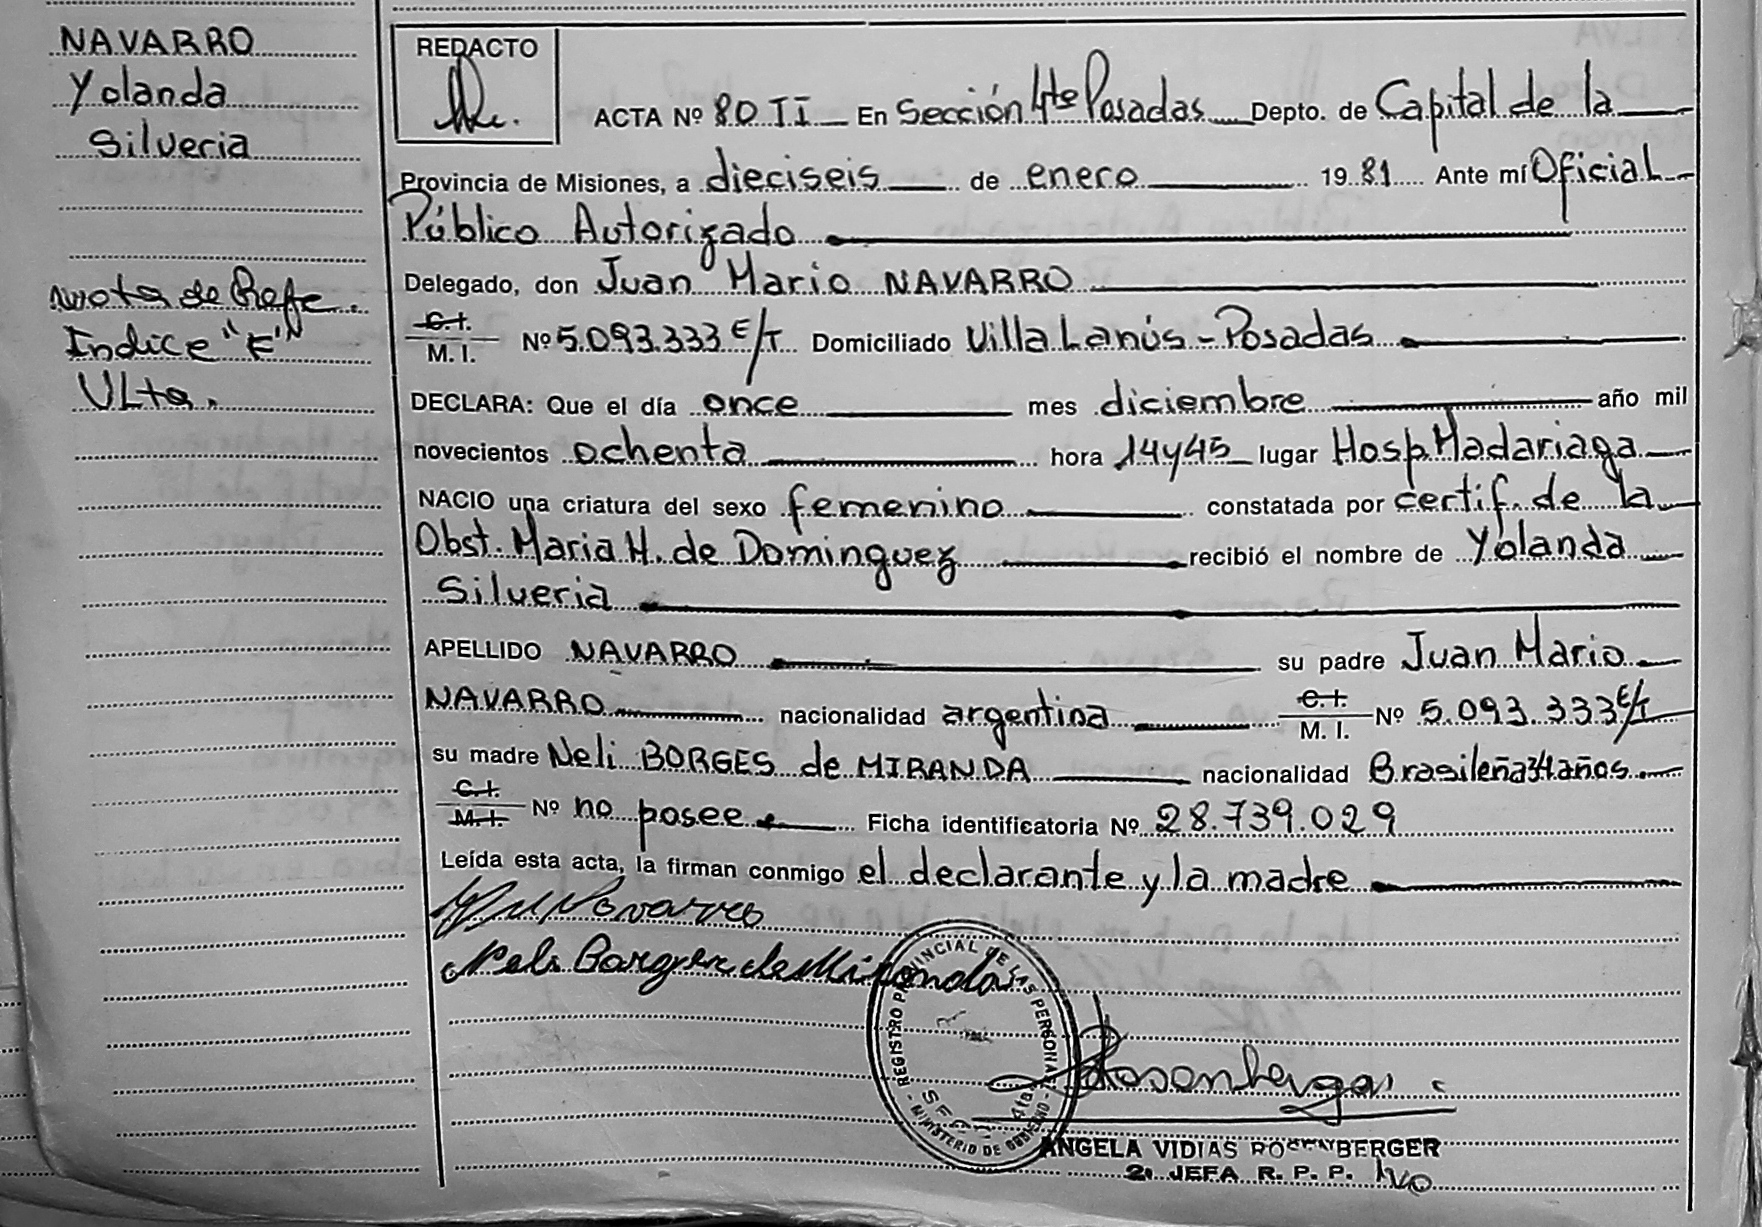 NAVARRO
Yolanda
Silveria
Nota de Refe.
Indice "E"
Vlta.
REDACTO
ACTA Nº 80 II En Sección 4ta Posadas Depto. de Capital de la
Provincia de Misiones, a dieciseis de enero 19 81 Ante mí Oficial
Público Autorizado
Delegado, don Juan Mario NAVARRO
C.I.
M. I. Nº 5.093.333 E/T Domiciliado Villa Lanús - Posadas
DECLARA: Que el día once mes diciembre año mil
novecientos ochenta hora 14y45 lugar Hosp. Madariaga
NACIO una criatura del sexo femenino constatada por certif. de la
Obst. Maria H. de Dominguez recibió el nombre de Yolanda
Silveria
APELLIDO NAVARRO su padre Juan Mario
NAVARRO nacionalidad argentina C.I. M. I. Nº 5.093.333 E/T
su madre Neli BORGES de MIRANDA nacionalidad Brasileña 34 años
C.I.
M.I. Nº no posee Ficha identificatoria Nº 28.739.029
Leída esta acta, la firman conmigo el declarante y la madre
Navarro
Neli Borges de Miranda
REGISTRO PROVINCIAL DE LAS PERSONAS
MINISTERIO DE GOBIERNO
4ta.
Rosenberger
ANGELA VIDIAS ROSENBERGER
2: JEFA R. P. P.